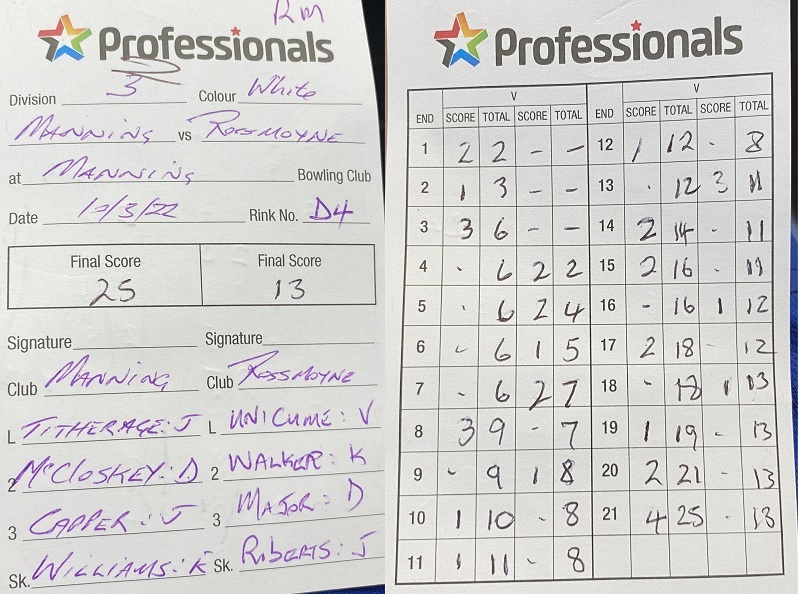 RM
Professionals
Division 3 Colour White
MANNING vs ROSSMOYNE
at MANNING Bowling Club
Date 12/3/22 Rink No. D4
Final Score Final Score
25 13
Signature Signature
Club MANNING Club ROSSMOYNE
L TITHERAGE: J L UNICUME: V
2 McCLOSKEY: D 2 WALKER: K
3 CAPPER: J 3 MAJOR: D
Sk. WILLIAMS: K Sk. ROBERTS: J
Professionals
V V
END SCORE TOTAL SCORE TOTAL END SCORE TOTAL SCORE TOTAL
1 2 2 - - 12 1 12 - 8
2 1 3 - - 13 - 12 3 11
3 3 6 - - 14 2 14 - 11
4 - 6 2 2 15 2 16 - 11
5 - 6 2 4 16 - 16 1 12
6 - 6 1 5 17 2 18 - 12
7 - 6 2 7 18 - 18 1 13
8 3 9 - 7 19 1 19 - 13
9 - 9 1 8 20 2 21 - 13
10 1 10 - 8 21 4 25 - 13
11 1 11 - 8